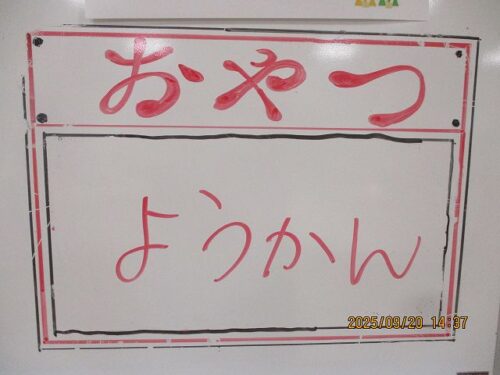 おやつ
ようかん
2025/09/20 14:37